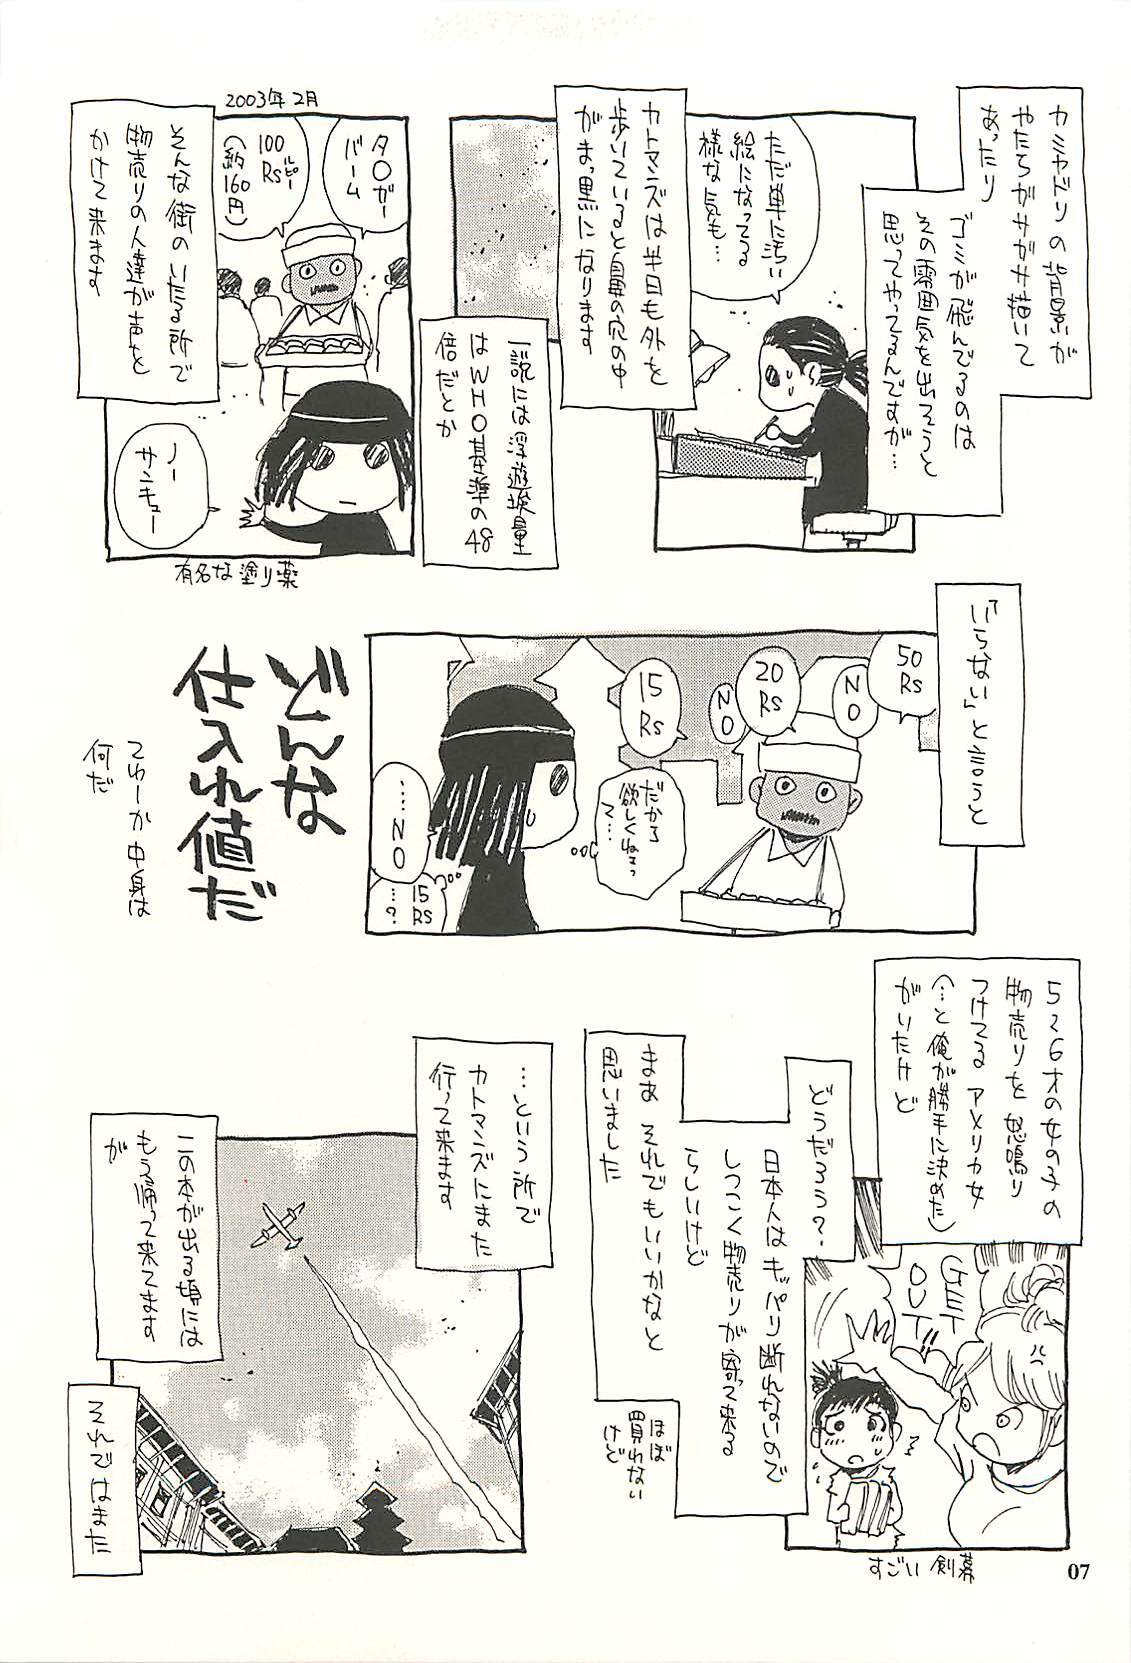 カミヤドリの背景が
やたらガサガサ描いて
あったり
ゴミが飛んでるのは
その雰囲気を出そうと
思ってやってるんですが…
ただ単に汚い
絵になってる
様な気も…
カトマンズは半日も外を
歩いていると鼻の穴の中
がまっ黒になります
一説には浮遊埃量
はWHO基準の48
倍だとか
2003年2月
タ○ガー
バーム
100
ルピー
Rs
(約160円)
そんな街のいたる所で
物売りの人達が声を
かけて来ます
ノー
サンキュー
有名な塗り薬
「いらない」と言うと
50
Rs
NO
20
Rs
NO
15
Rs
だから
欲しくねぇっ
て…
……NO
15
Rs
…?
どんな
仕入れ値だ
てゆーか中身は
何だ
5〜6才の女の子の
物売りを怒鳴り
つけてるアメリカ女
(…と俺が勝手に決めた)
がいたけど
GET
OUT!!
すごい剣幕
どうだろう?
日本人はキッパリ断れないので
しつこく物売りが寄って来る
らしいけど
まあ それでもいいかなと
思いました
ほぼ
買わない
けど
…という所で
カトマンズにまた
行って来ます
この本が出る頃には
もう帰って来てます
が
それではまた
07